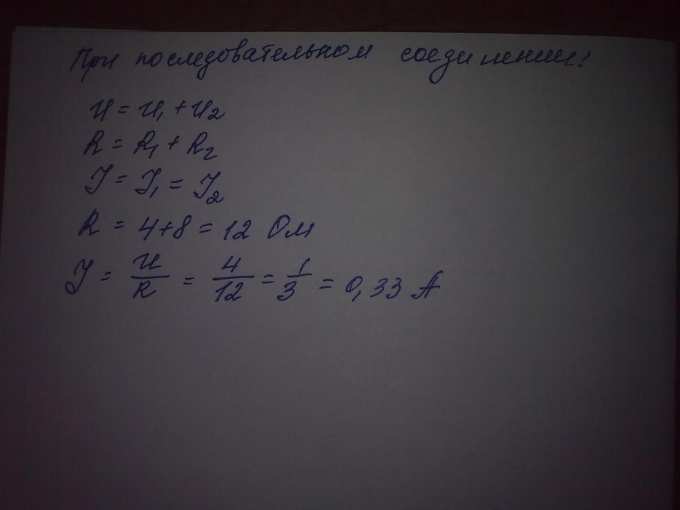 При последовательном соединении:
U = U₁ + U₂
R = R₁ + R₂
I = I₁ = I₂
R = 4+8 = 12 Ом
I = U/R = 4/12 = 1/3 = 0,33 А